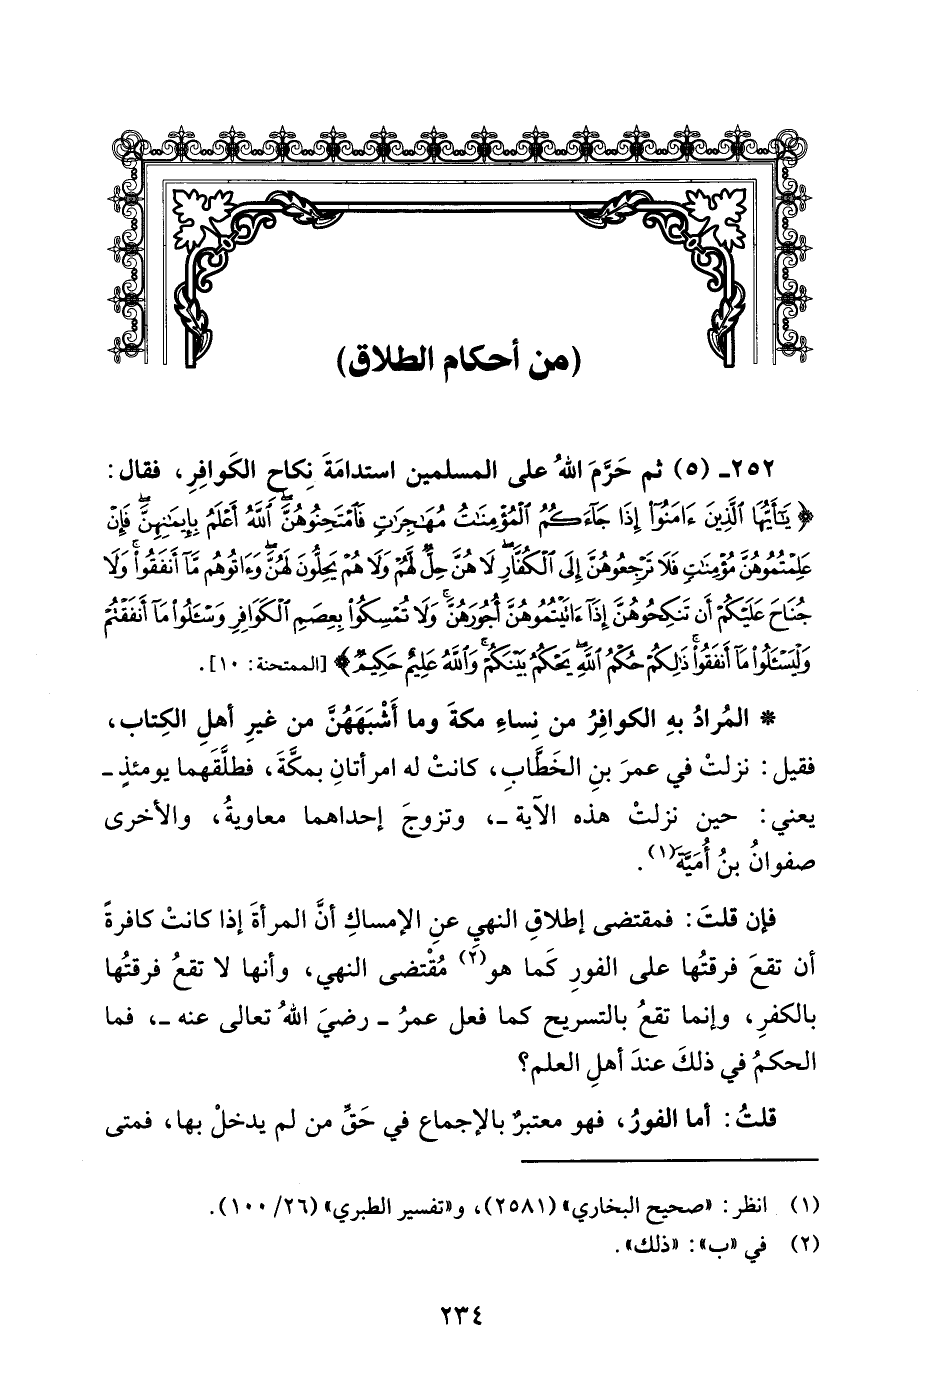 (من أحكام الطلاق)
٢٥٢ـ (٥) ثم حَرَّمَ اللهُ على المسلمين استدامَةَ نِكاحِ الكَوافِرِ، فقال:
﴿يَٰٓأَيُّهَا ٱلَّذِينَ ءَامَنُوٓا۟ إِذَا جَآءَكُمُ ٱلْمُؤْمِنَٰتُ مُهَٰجِرَٰتٍ فَٱمْتَحِنُوهُنَّ ۖ ٱللَّهُ أَعْلَمُ بِإِيمَٰنِهِنَّ ۖ فَإِنْ
عَلِمْتُمُوهُنَّ مُؤْمِنَٰتٍ فَلَا تَرْجِعُوهُنَّ إِلَى ٱلْكُفَّارِ ۖ لَا هُنَّ حِلٌّ لَّهُمْ وَلَا هُمْ يَحِلُّونَ لَهُنَّ ۖ وَءَاتُوهُم مَّآ أَنفَقُوا۟ ۚ وَلَا
جُنَاحَ عَلَيْكُمْ أَن تَنكِحُوهُنَّ إِذَآ ءَاتَيْتُمُوهُنَّ أُجُورَهُنَّ ۚ وَلَا تُمْسِكُوا۟ بِعِصَمِ ٱلْكَوَافِرِ وَسْـَٔلُوا۟ مَآ أَنفَقْتُمْ
وَلْيَسْـَٔلُوا۟ مَآ أَنفَقُوا۟ ۚ ذَٰلِكُمْ حُكْمُ ٱللَّهِ ۖ يَحْكُمُ بَيْنَكُمْ ۚ وَٱللَّهُ عَلِيمٌ حَكِيمٌ﴾ [الممتحنة: ١٠].
* المُرادُ بهِ الكوافِرُ من نِساءِ مكةَ وما أَشْبَهَهُنَّ من غيرِ أهلِ الكِتاب،
فقيل: نزلتْ في عمرَ بنِ الخَطَّابِ، كانتْ له امرأتانِ بمكَّةَ، فطلَّقَهما يومئذٍ ـ
يعني: حين نزلتْ هذه الآية ـ، وتزوجَ إحداهما معاويةُ، والأخرى
صفوانُ بنُ أُمَيَّةَ(١).
فإن قلتَ: فمقتضى إطلاقِ النهيِ عنِ الإمساكِ أنَّ المرأةَ إذا كانتْ كافرةً
أن تقعَ فرقتُها على الفورِ كَما هو(٢) مُقْتضى النهي، وأنها لا تقعُ فرقتُها
بالكفرِ، وإنما تقعُ بالتسريحِ كما فعل عمرُ ـ رضيَ اللهُ تعالى عنه ـ، فما
الحكمُ في ذلكَ عندَ أهلِ العلم؟
قلتُ: أما الفورُ، فهو معتبرٌ بالإجماع في حَقِّ من لم يدخلْ بها، فمتى
(١) انظر: «صحيح البخاري» (٢٥٨١)، و«تفسير الطبري» (٢٦/ ١٠٠).
(٢) في «ب»: «ذلك».
٢٣٤